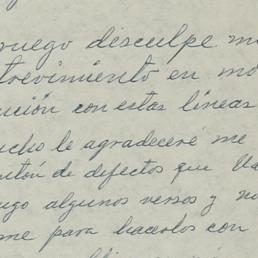 ruego disculpe m
trevimiento en mo
ución con estas líneas
ucho le agradeceré me
ntón de defectos que Ud
ngo algunos versos y no
me para hacerlos con